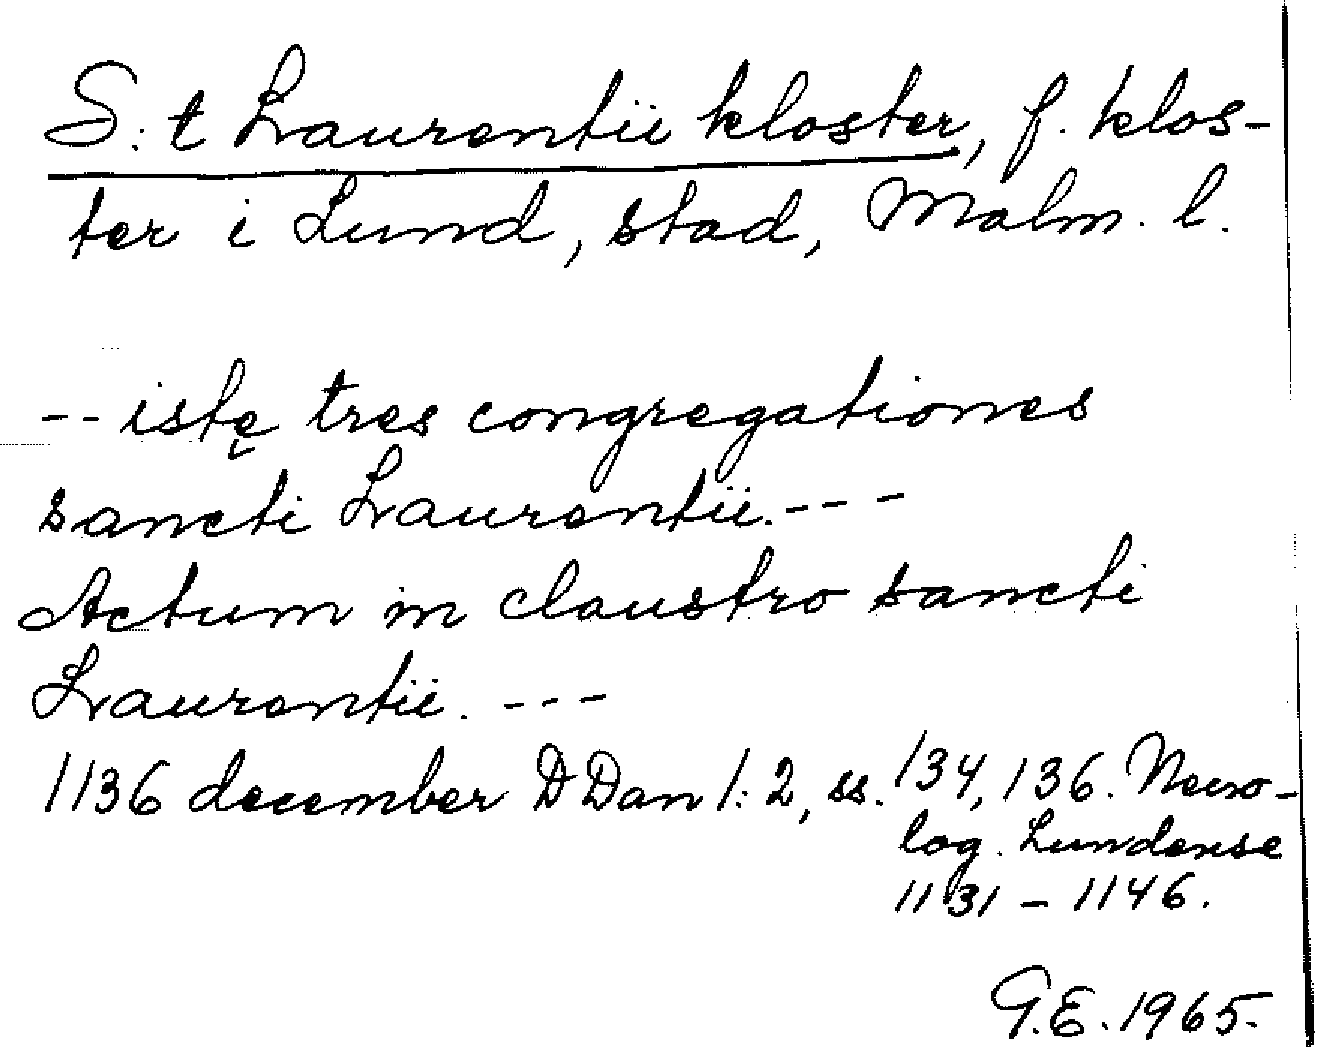 S:t Laurentii kloster, f. klos-
ter i Lund, stad, Malm. l.
-- istę tres congregationes
sancti Laurentii. ---
Actum in claustro sancti
Laurentii. ---
1136 december DDan 1:2, ss. 134, 136. Necro-
log. Lundense
1131 - 1146.
G.E. 1965.